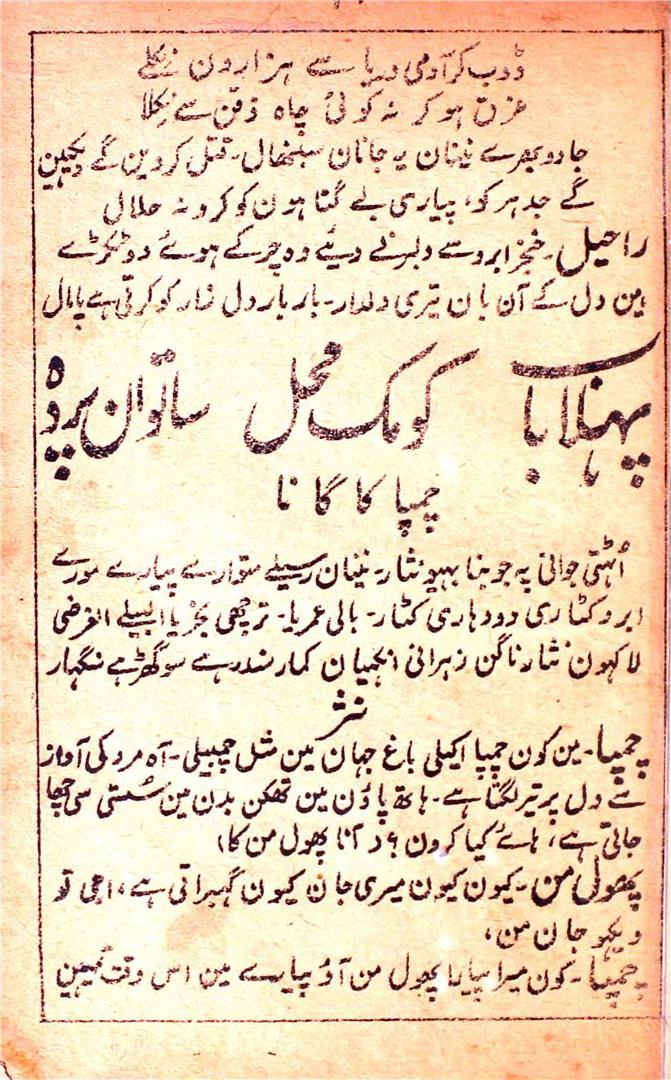 ڈوب کر آدمی دریا سے ہزارون نکلے
غرق ہو کر نہ کوئی چاہ ذقن سے نکلا
جادو بھرے نینان یہ جانان سنبھال۔ قتل کر دین گے دیکھین
گے جدہر کو، پیاری بے گناہون کو کرو نہ حلال
راحیل۔ خنجر ابرو سے دلبر نے دیئے وہ چرکے ہوئے دو ٹکڑے
ہین دل کے آن بان تیری دلدار۔ بار بار دل زار کو کرتی ہے پامال
پہلا باب کومک محل ساتوان پردہ
چمپا کا گانا
اُٹہتی جوانی پہ جوبنا بہیو نثار۔ نینان رسیلے متوارے پیارے مورے
ابرو کٹاری دودہاری کٹار۔ بالی عمریا۔ ترچھی نجریا البیلے الغرضی
لاکہون نثار ناگن زہرانی انکہیان کمار سندر ہے سوگھڑ ہے سنگہار
نثر
چمپا۔ مین کون چمپا اکیلی باغ جہان مین مثل چمبیلی۔ آہ مرد کی آواز
سے دل پر تیر لگتا ہے۔ ہاتھ پاؤن مین تھکن بدن مین سُستی سی چھا
جاتی ہے، ہائے کیا کرون؟ (آنا پھول من کا)
پھول من۔ کیون کیون میری جان کیون گہبراتی ہے، اجی تو
دیکہو جان من،
چمپا۔ کون میرا پیارا پھول من آؤ پیارے مین اس وقت تمہین